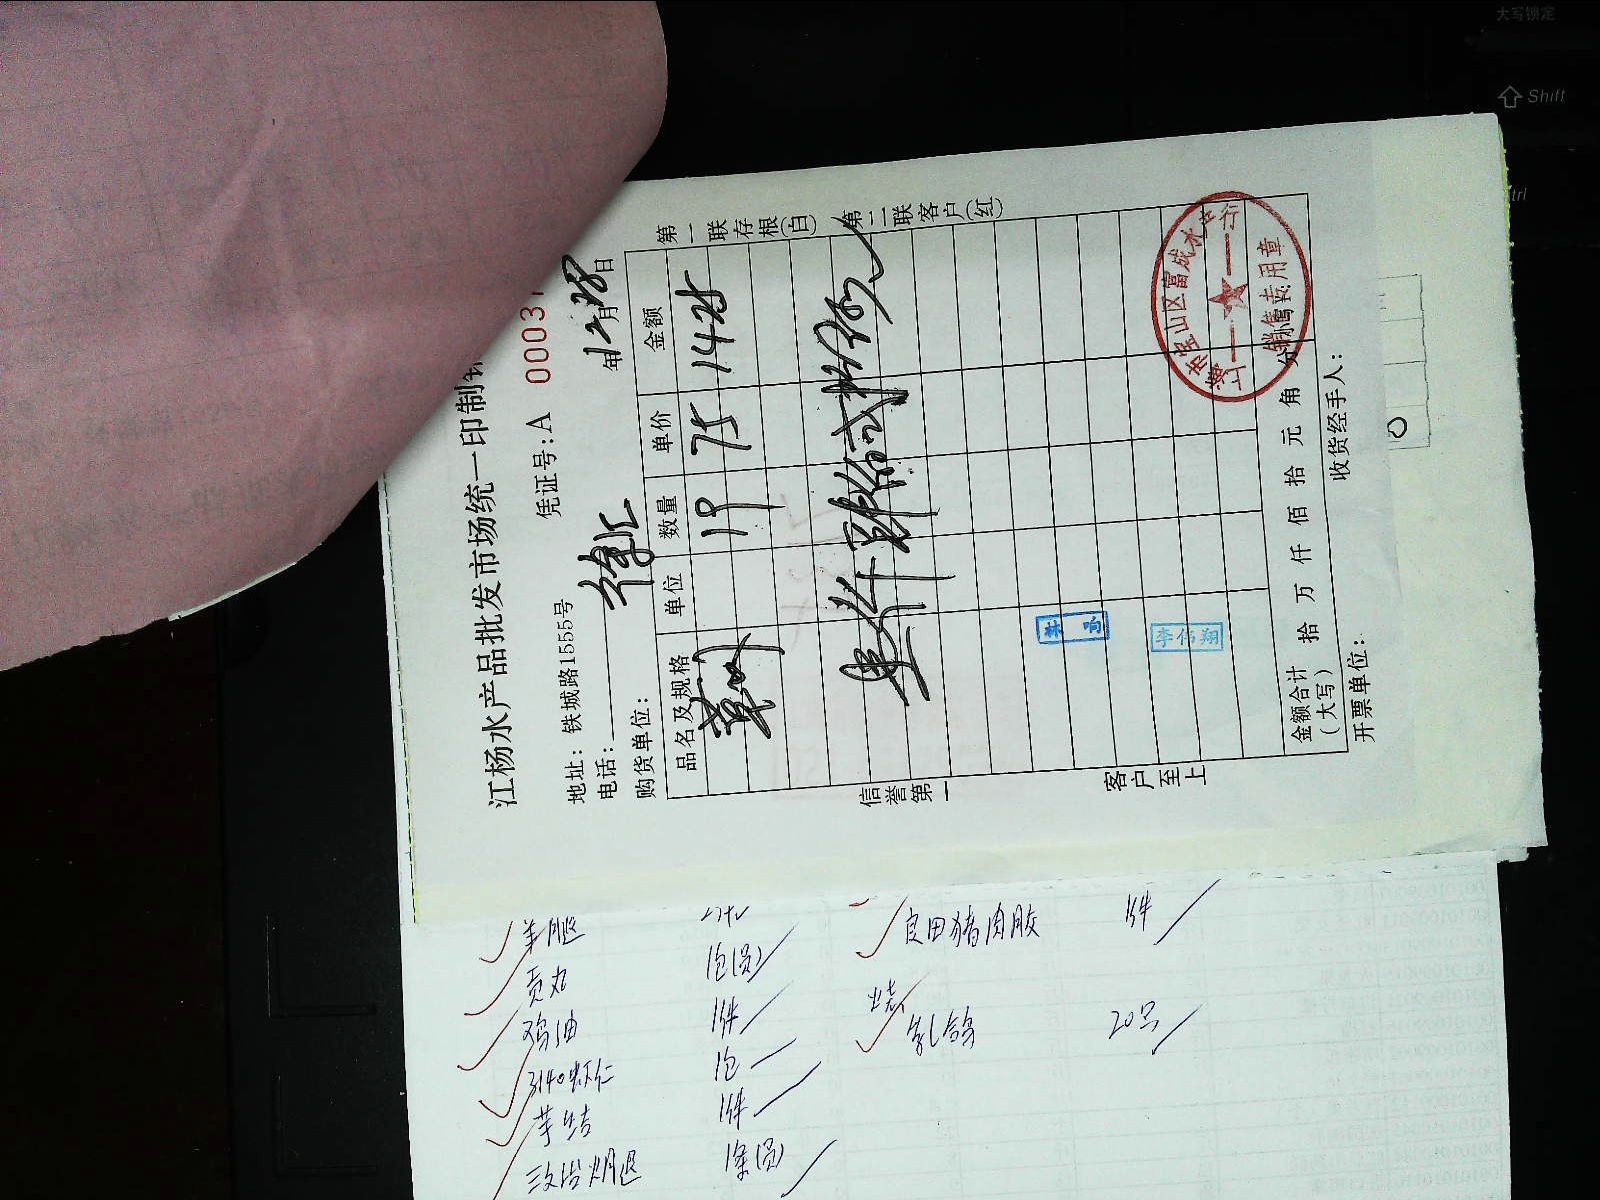 江杨水产品批发市场统一印制
凭证号:A 00031
地址: 铁城路1555号
年12月28日
电话:
徐汇
购货单位:
品名及规格 单位 数量 单价 金额
19 75 1425
壹仟肆佰贰拾伍元
金额合计(大写) 拾 万 仟 佰 拾 元 角 分
开票单位: 收货经手人:
第一联存根(白) 第二联客户(红)
信誉第一 客户至上
宝山区富成水产行
销售专用章
李伟翔
羊腿
贡丸 1包(员)
鸡油 1件
3140虾仁 1包
芋结 1件
三文治火腿 1条(员)
良田猪肉胶 1件
烧乳鸽 20只
大写锁定
Shift
trl